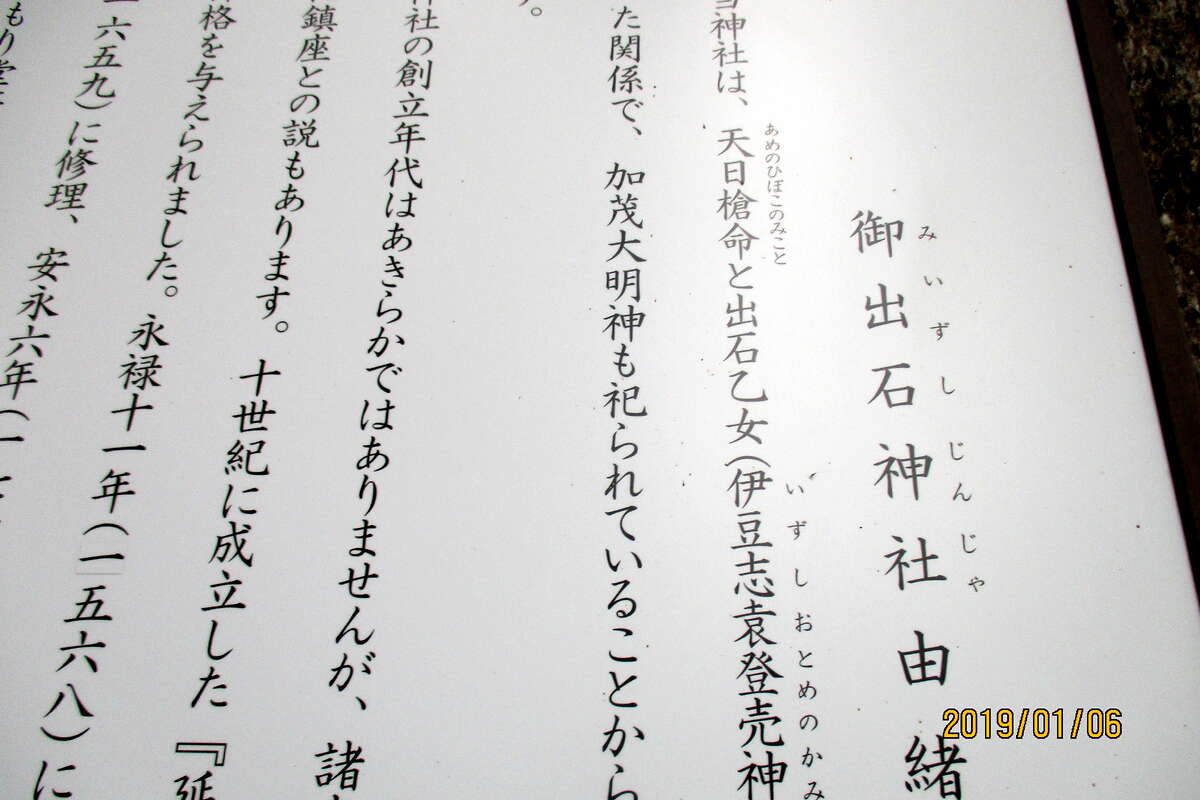 御出石神社由緒
みいずしじんじゃ
当神社は、天日槍命と出石乙女（伊豆志袁登売神
あめのひぼこのみこと
いずしおとめのかみ
た関係で、加茂大明神も祀られていることから
す。
神社の創立年代はあきらかではありませんが、諸
鎮座との説もあります。十世紀に成立した『延
格を与えられました。永禄十一年（一五六八）に
六五九）に修理、安永六年（一
もり堂
2019/01/06